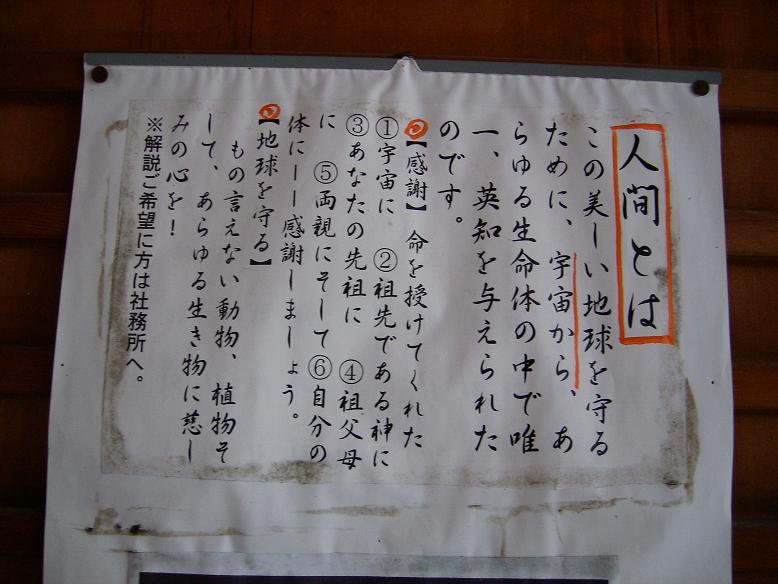 人間とは
この美しい地球を守る
ために、宇宙から、あ
らゆる生命体の中で唯
一、英知を与えられた
のです。
【感謝】 命を授けてくれた
①宇宙に ②祖先である神に
③あなたの先祖に ④祖父母
に ⑤両親にそして⑥自分の
体にーー感謝しましょう。
【地球を守る】
もの言えない動物、植物そ
して、あらゆる生き物に慈し
みの心を！
※解説ご希望に方は社務所へ。